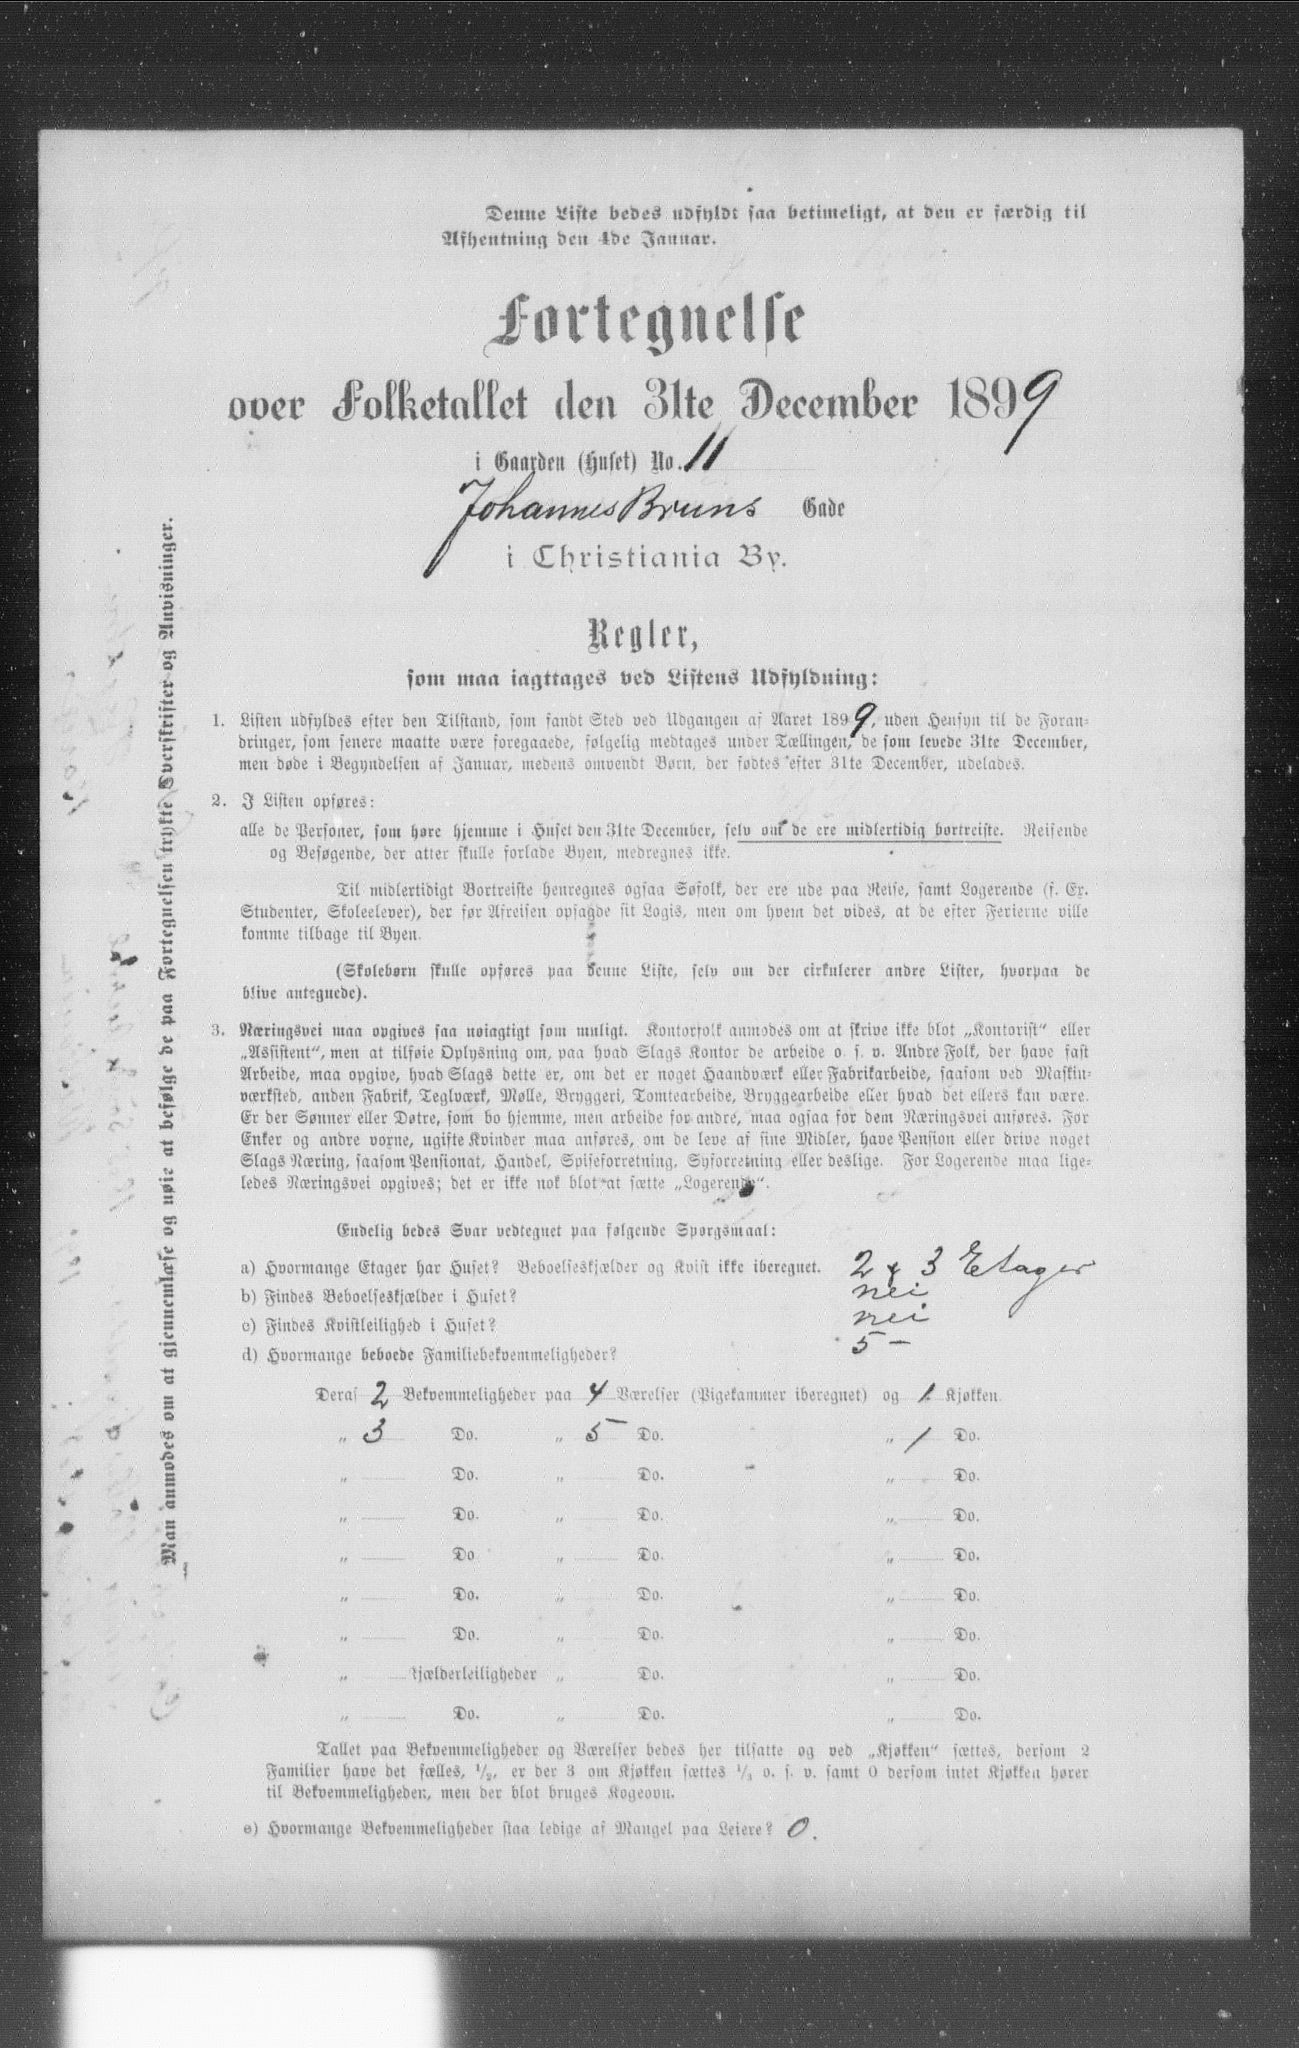 Denne Liste bedes udfyldt saa betimeligt, at den er færdig til
Afhentning den 4de Januar.
Fortegnelse
over Folketallet den 31te December 1899
i Gaarden (Huset) No. 11
Johannes Bruns Gade
i Christiania By.
Regler,
som maa iagttages ved Listens Udfyldning:
1. Listen udfyldes efter den Tilstand, som fandt Sted ved Udgangen af Aaret 1899, uden Hensyn til de Foran-
dringer, som senere maatte være foregaaede, følgelig medtages under Tællingen, de som levede 31te December,
men døde i Begyndelsen af Januar, medens omvendt Børn, der fødtes efter 31te December, udelades.
2. I Listen opføres:
alle de Personer, som høre hjemme i Huset den 31te December, selv om de ere midlertidig bortreiste. Reisende
og Besøgende, der atter skulle forlade Byen, medregnes ikke.
Til midlertidigt Bortreiste henregnes ogsaa Søfolk, der ere ude paa Reise, samt Logerende (f. Ex.
Studenter, Skoleelever), der før Afreisen opsagde sit Logis, men om hvem det vides, at de efter Ferierne ville
komme tilbage til Byen.
(Skolebørn skulle opføres paa denne Liste, selv om der cirkulerer andre Lister, hvorpaa de
blive antegnede).
3. Næringsvei maa opgives saa nøiagtigt som muligt. Kontorfolk anmodes om at skrive ikke blot „Kontorist“ eller
„Assistent“, men at tilføie Oplysning om, paa hvad Slags Kontor de arbeide o. s. v. Andre Folk, der have fast
Arbeide, maa opgive, hvad Slags dette er, om det er noget Haandværk eller Fabrikarbeide, saasom ved Maskin-
værksted, anden Fabrik, Teglværk, Mølle, Bryggeri, Tomtearbeide, Bryggearbeide eller hvad det ellers kan være.
Er der Sønner eller Døtre, som bo hjemme, men arbeide for andre, maa ogsaa for dem Næringsvei anføres. For
Enker og andre voxne, ugifte Kvinder maa anføres, om de leve af sine Midler, have Pension eller drive noget
Slags Næring, saasom Pensionat, Handel, Spiseforretning, Syforretning eller deslige. For Logerende maa lige-
ledes Næringsvei opgives; det er ikke nok blot at sætte „Logerende“.
Endelig bedes Svar vedtegnet paa følgende Spørgsmaal:
a) Hvormange Etager har Huset? Beboelseskjælder og Kvist ikke iberegnet. 2 & 3 Etager
b) Findes Beboelseskjælder i Huset? nei
c) Findes Kvistleilighed i Huset? nei
d) Hvormange beboede Familiebekvemmeligheder? 5 –
Deraf 2 Bekvemmeligheder paa 4 Værelser (Pigekammer iberegnet) og 1 Kjøkken.
„ 3 Do. „ 5 Do. „ 1 Do.
„ Do. „ Do. „ Do.
„ Do. „ Do. „ Do.
„ Do. „ Do. „ Do.
„ Do. „ Do. „ Do.
„ Do. „ Do. „ Do.
„ Kjælderleiligheder „ Do. „ Do.
„ Do. „ Do. „ Do.
Tallet paa Bekvemmeligheder og Værelser bedes her tilsatte og ved „Kjøkken“ sættes, dersom 2
Familier have det fælles, 1/2, er der 3 om Kjøkken sættes 1/3 o. s. v. samt 0 dersom intet Kjøkken hører
til Bekvemmeligheden, men der blot bruges Kogeovn.
e) Hvormange Bekvemmeligheder staa ledige af Mangel paa Leiere? 0.
Man anmodes om at gjennemlæse og nøie at befølge de paa Fortegnelsen trykte Overskrifter og Anvisninger.